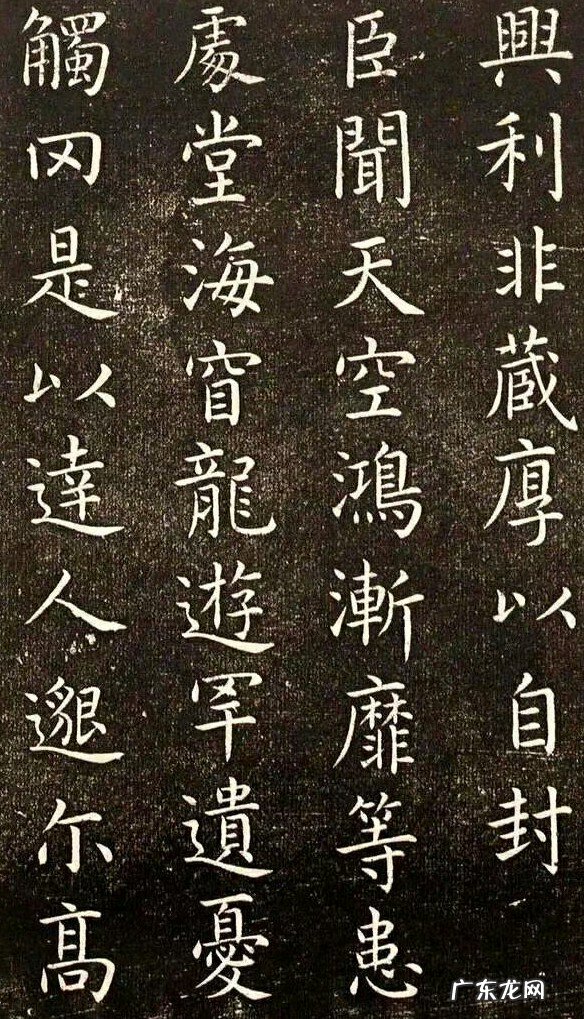 興利非蔵厚以自封
臣聞天空鴻漸靡等患
處堂海窅龍遊罕遺憂
觸冈是以達人邈尒髙
广东龙网